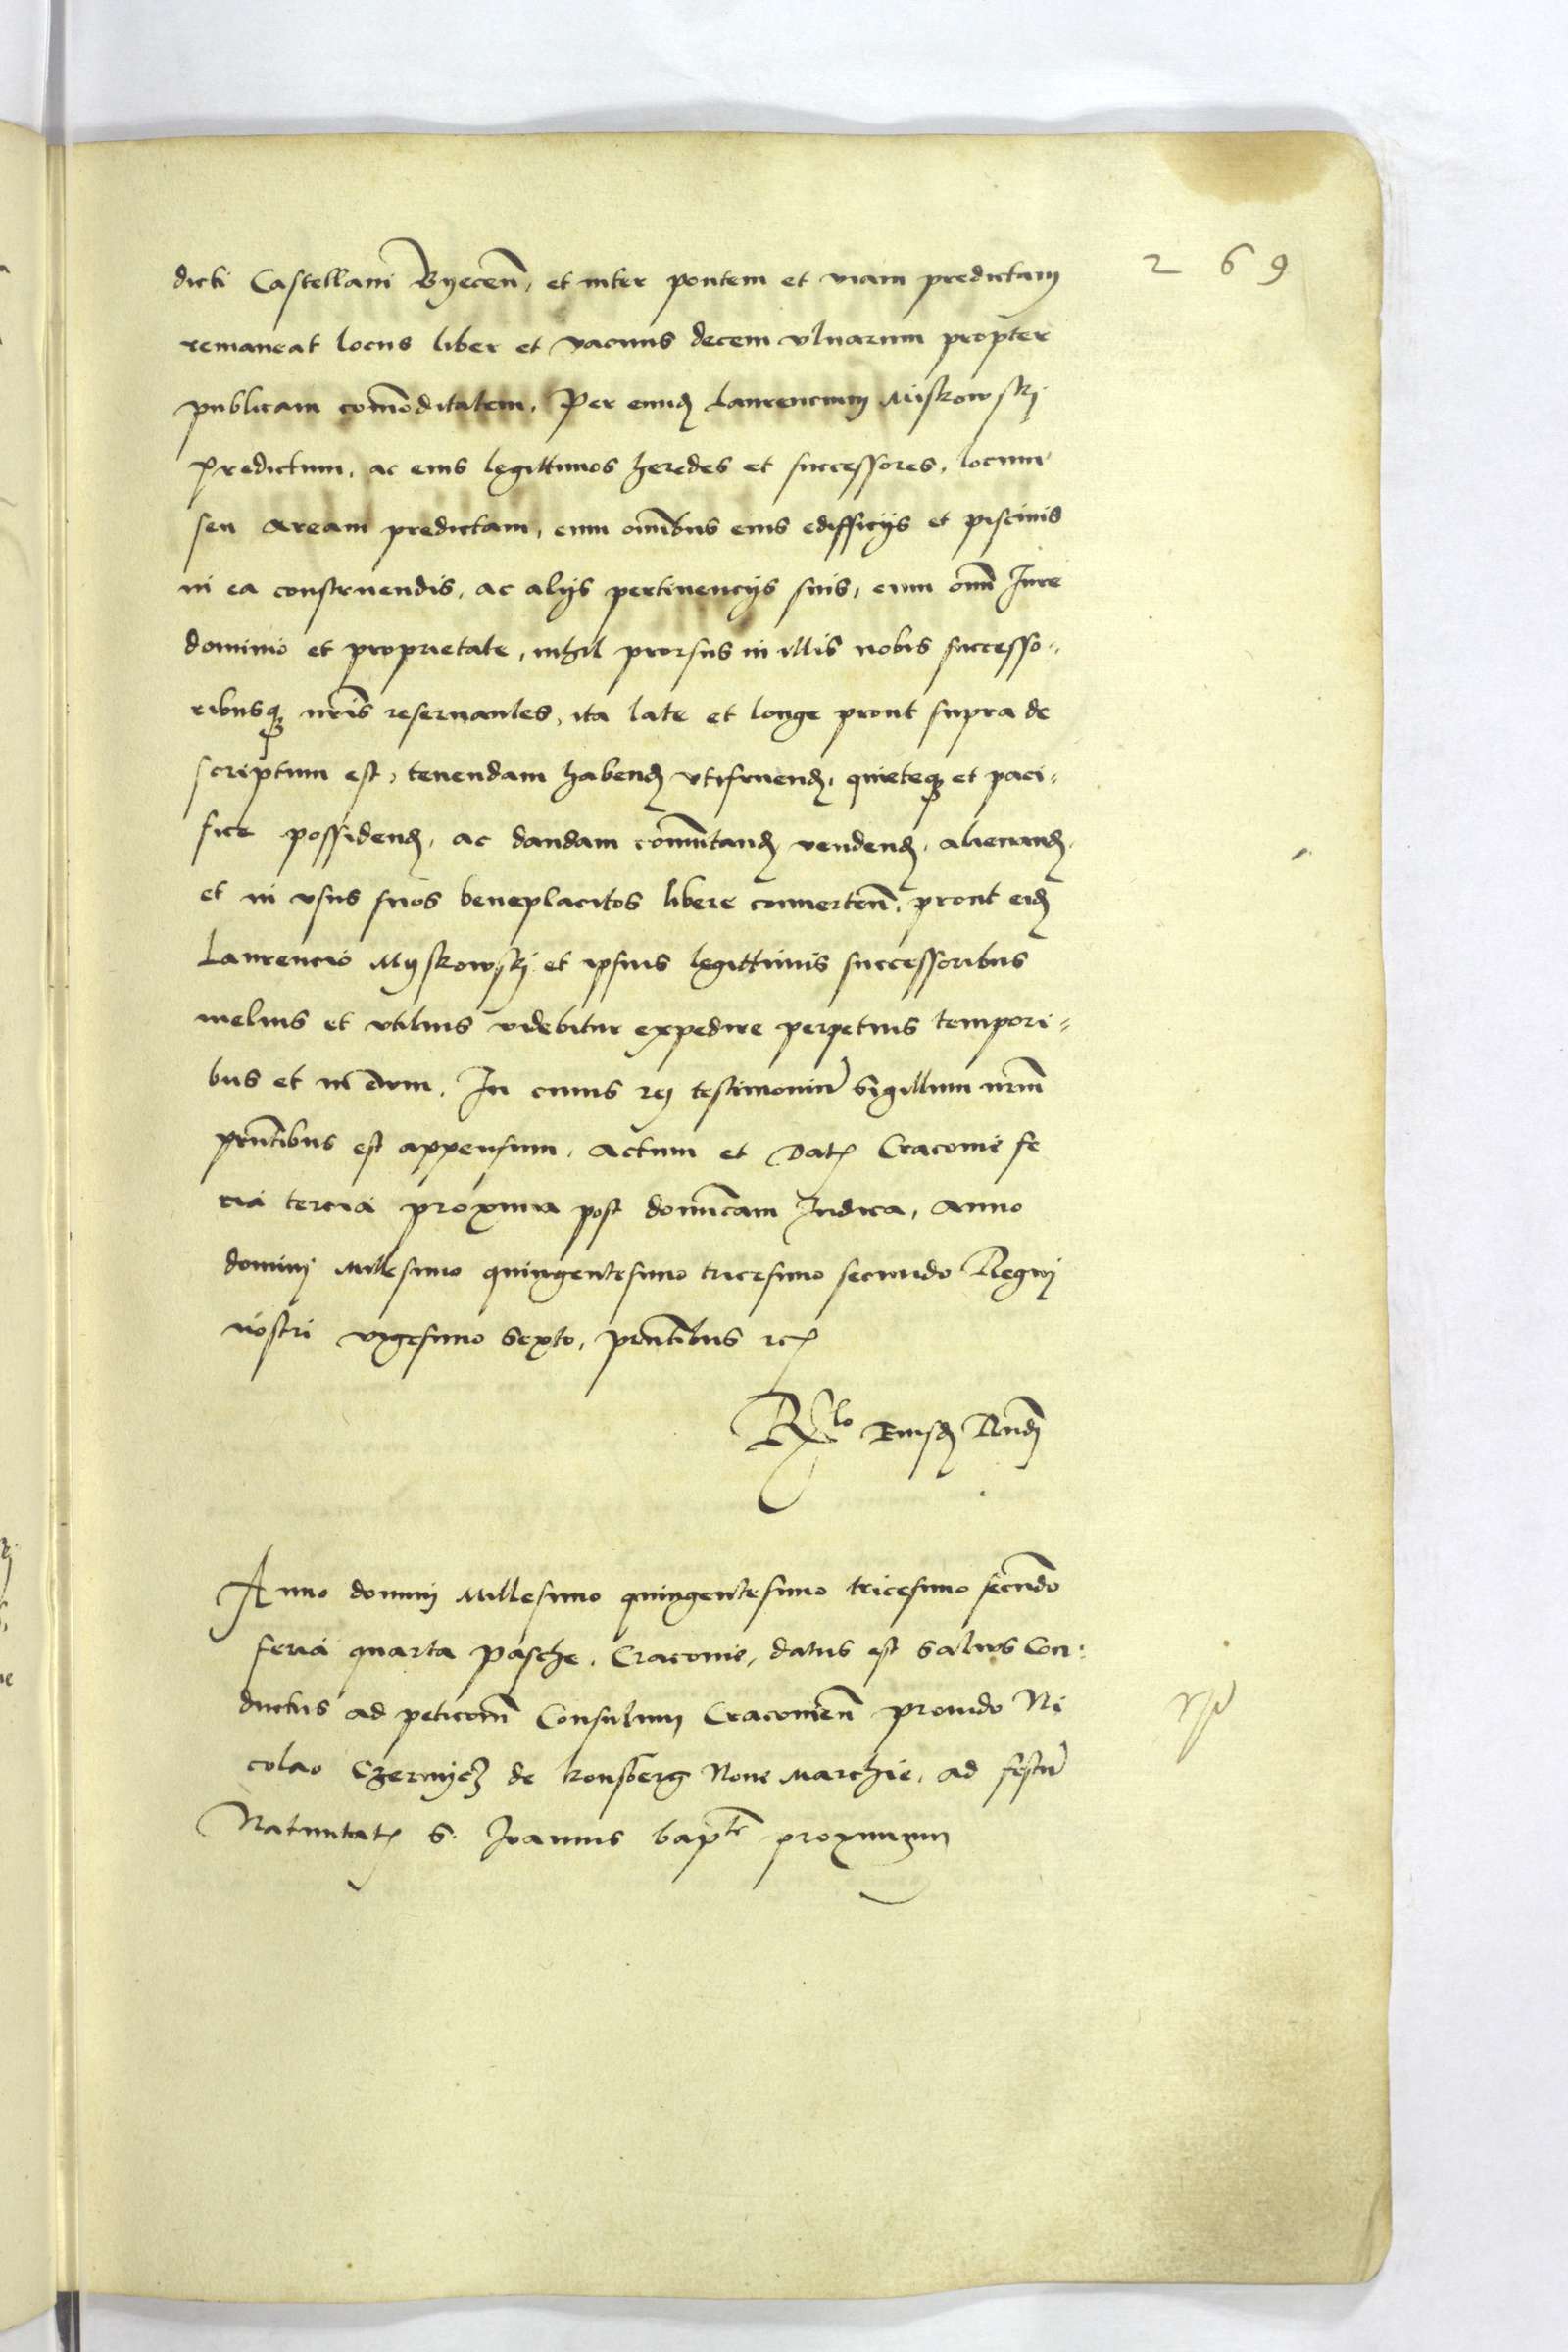 269
dicti Castellani Byeceñ, et inter pontem et viam predictam
remaneat locus liber et vacuus decem ulnarum propter
publicam com̃oditatem. Per eund Laurencium Miskowskj
predictum, ac eius legittimos heredes et successores, locum
seu aream predictam, cum om̃ibus eius edifficijs et piscinis
in ea construendis, ac alijs pertinencijs suis, cum om̃i Jure
dominio et proprietate, nihil prorsus in illis nobis successo-
ribusq nr̃is reseruantes, ita late et longe prout supra de
scriptum est, tenendam habend vtifruend, quieteq et paci-
fice possidend, ac dandam com̃utand vendend, alienand,
et in vsus suos beneplacitos libere conuerteñ, prout eid
Laurencio Myskowskj et ipsius legittimis successoribus
melius et vtilius videbitur expedire perpetuis tempori-
bus et in euum. In cuius rej testimoniũ Sigillum nr̃m
pñtibus est appensum. Actum et Dat Cracouie fe
ria tercia proxima post domĩcam Judica, Anno
dominj Millesimo quingentesimo tricesimo secundo Regnj
nostri vigesimo sexto, pñtibus etc
Rlo Eiusd Rñdj
Anno dominj Millesimo quingentesimo tricesimo secũdo
feria quarta pasche, Cracouie, datus est Saluus Con-
ductus ad peticoñ Consulum Cracouieñ prouido Ni
colao Czernycz de konsberg Noue Marchie, ad festũ
Natiuitat S. Joannis bapte proximum